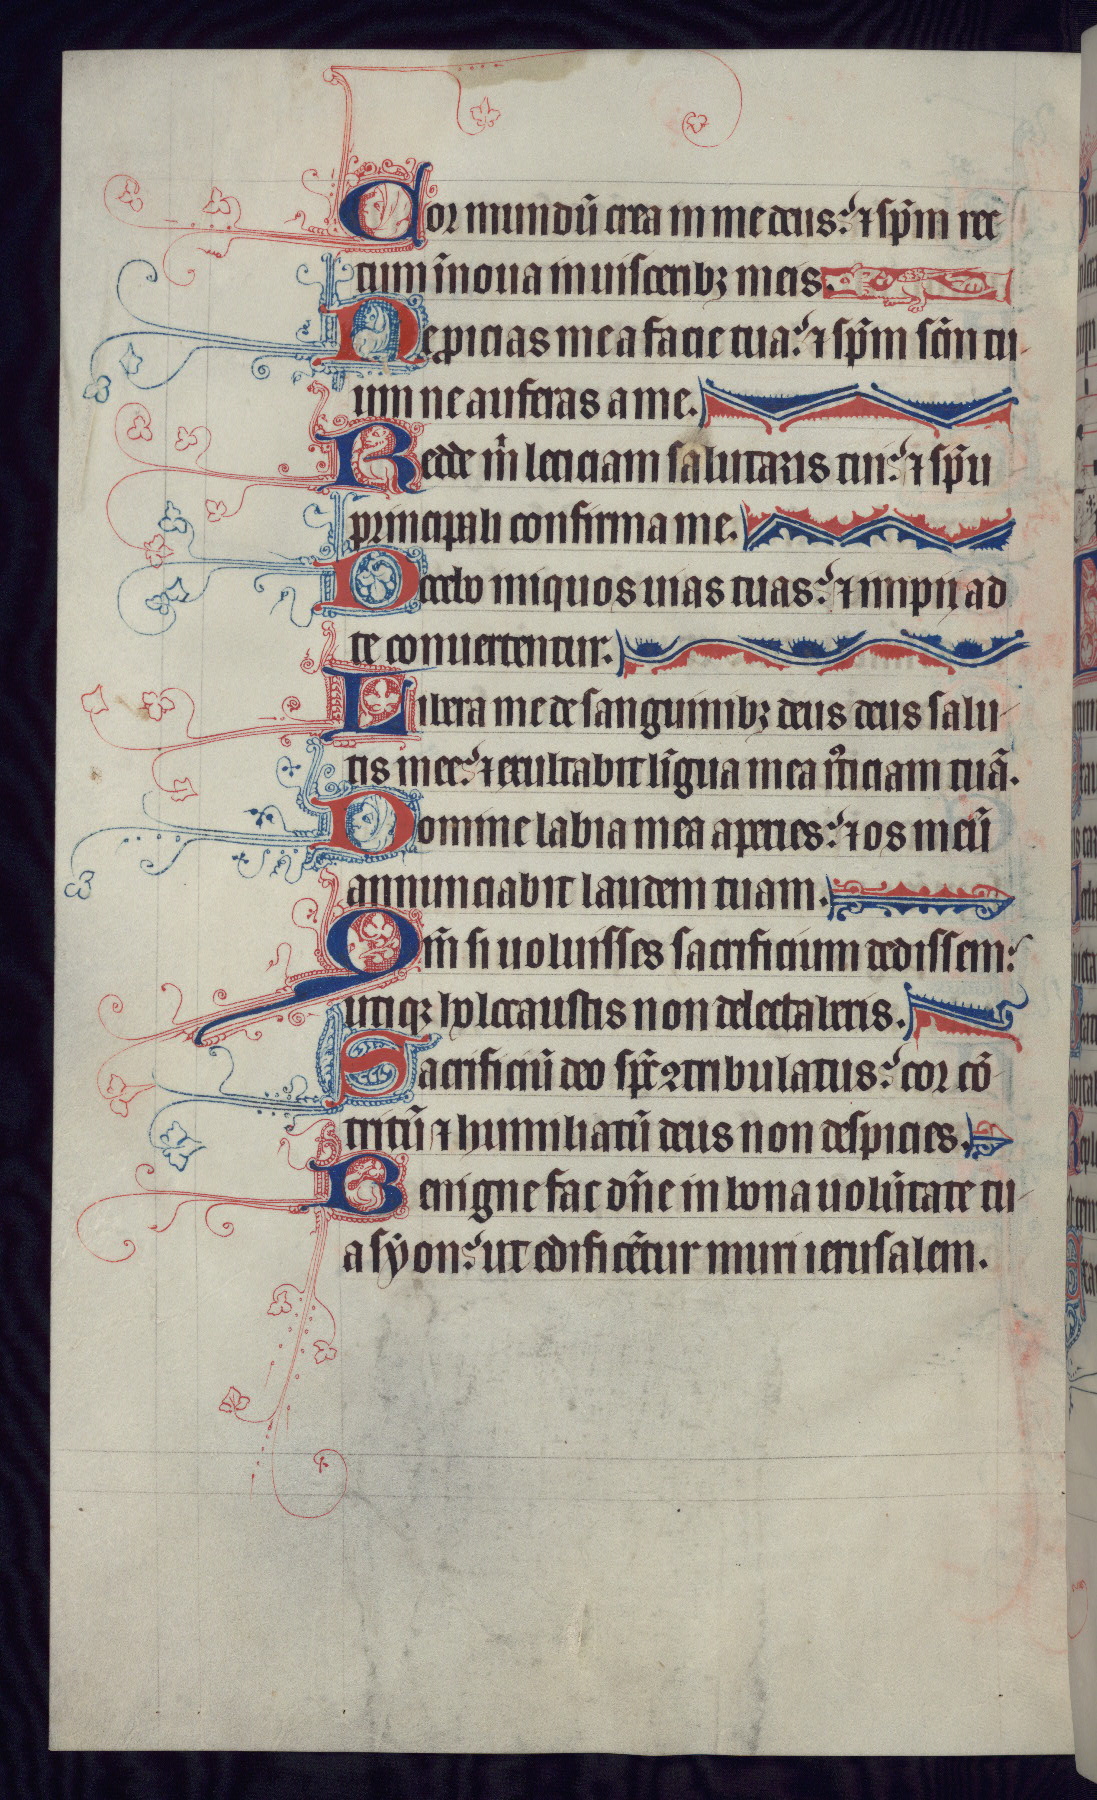 Cor mundū crea in me deus: ⁊ sp̄m rec
tum īnoua in uisceribȝ meis.
Ne ꝓicias me a facie tua: ⁊ sp̄m sc̄m tu
um ne auferas a me.
Redde m̍ leticiam salutaris tui: ⁊ sp̄u
principali confirma me.
Docebo iniquos uias tuas: ⁊ impij ad
te conuertentur.
Libera me de sanguinibȝ deus deus salu
tis mee: ⁊ exultabit līgua mea iꝰticiam tuā.
Domine labia mea aperies: ⁊ os meū
annunciabit laudem tuam.
Qm̄ si uoluisses sacrificium dedissem:
utiqȝ holocaustis non delectaberis.
Sacrificiū deo sp̄c ꝯtribulatus: cor cō
tritū ⁊ humiliatū deus non despicies.
Benigne fac dn̄e in bona uolūtate tu
a syon: ut edificētur muri ierusalem.